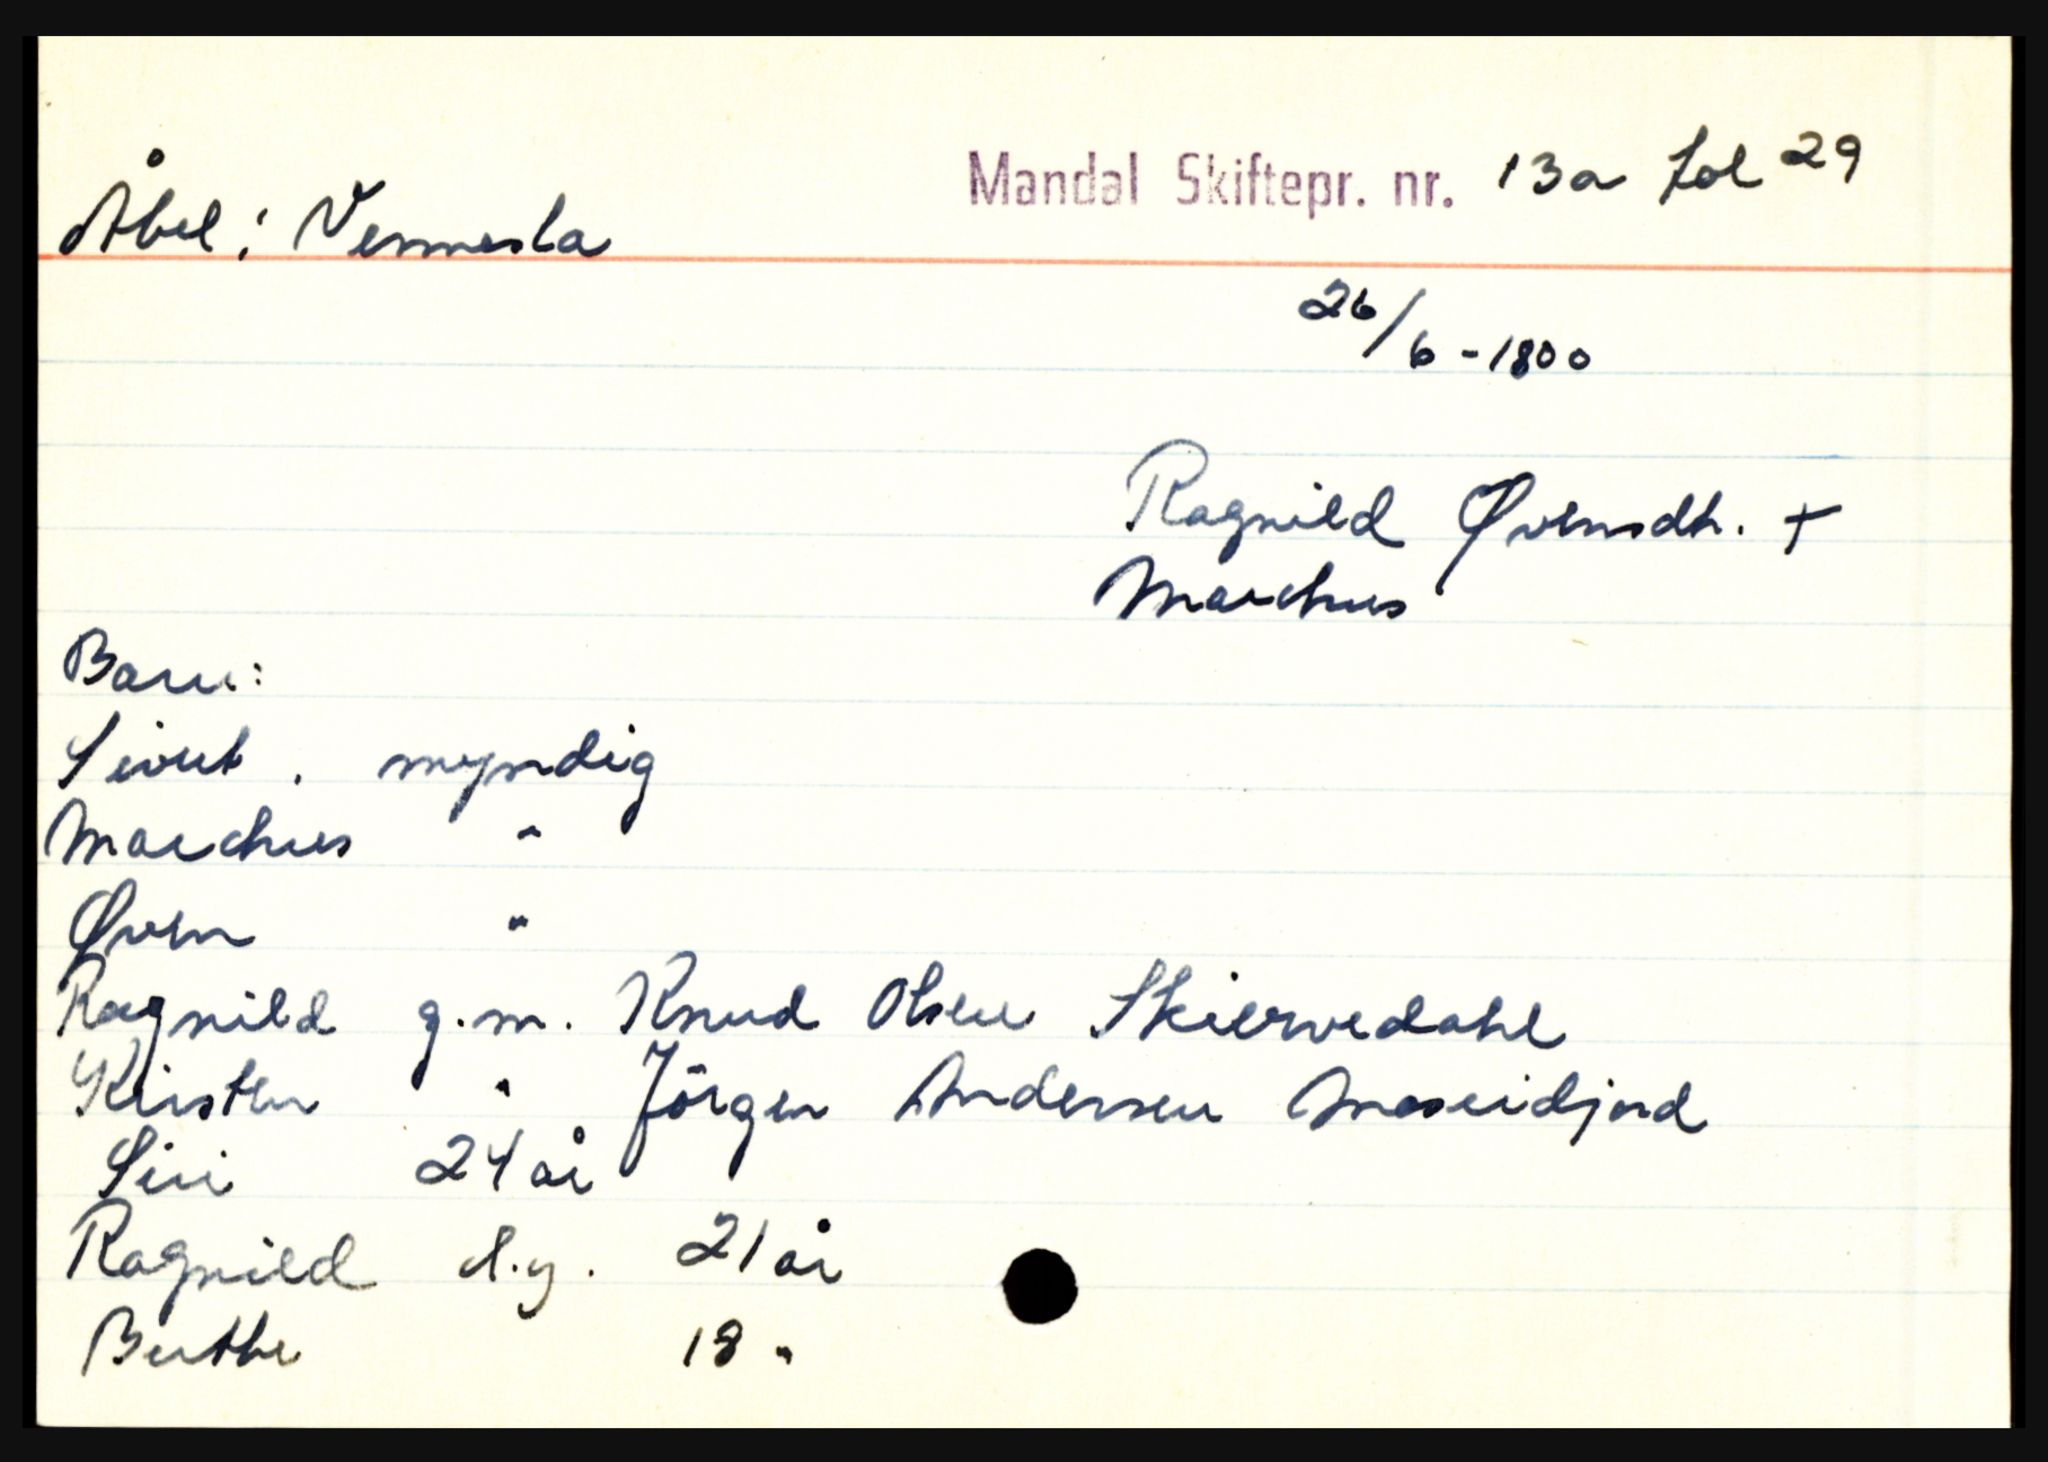 Mandal Skiftepr. nr. 13a fol 29
Åbel i Vennesla
26/6 - 1800
Ragnild Øvensdtr. +
Marchus
Barn:
Sivert. myndig
Marchus "
Øven "
Ragnild g.m. Knud Olsen Skiervedahl
Kirsten " Jörgen Andersen Moseidjord
Siri 24 år
Ragnild d.y. 21 år
Berthe 18 "